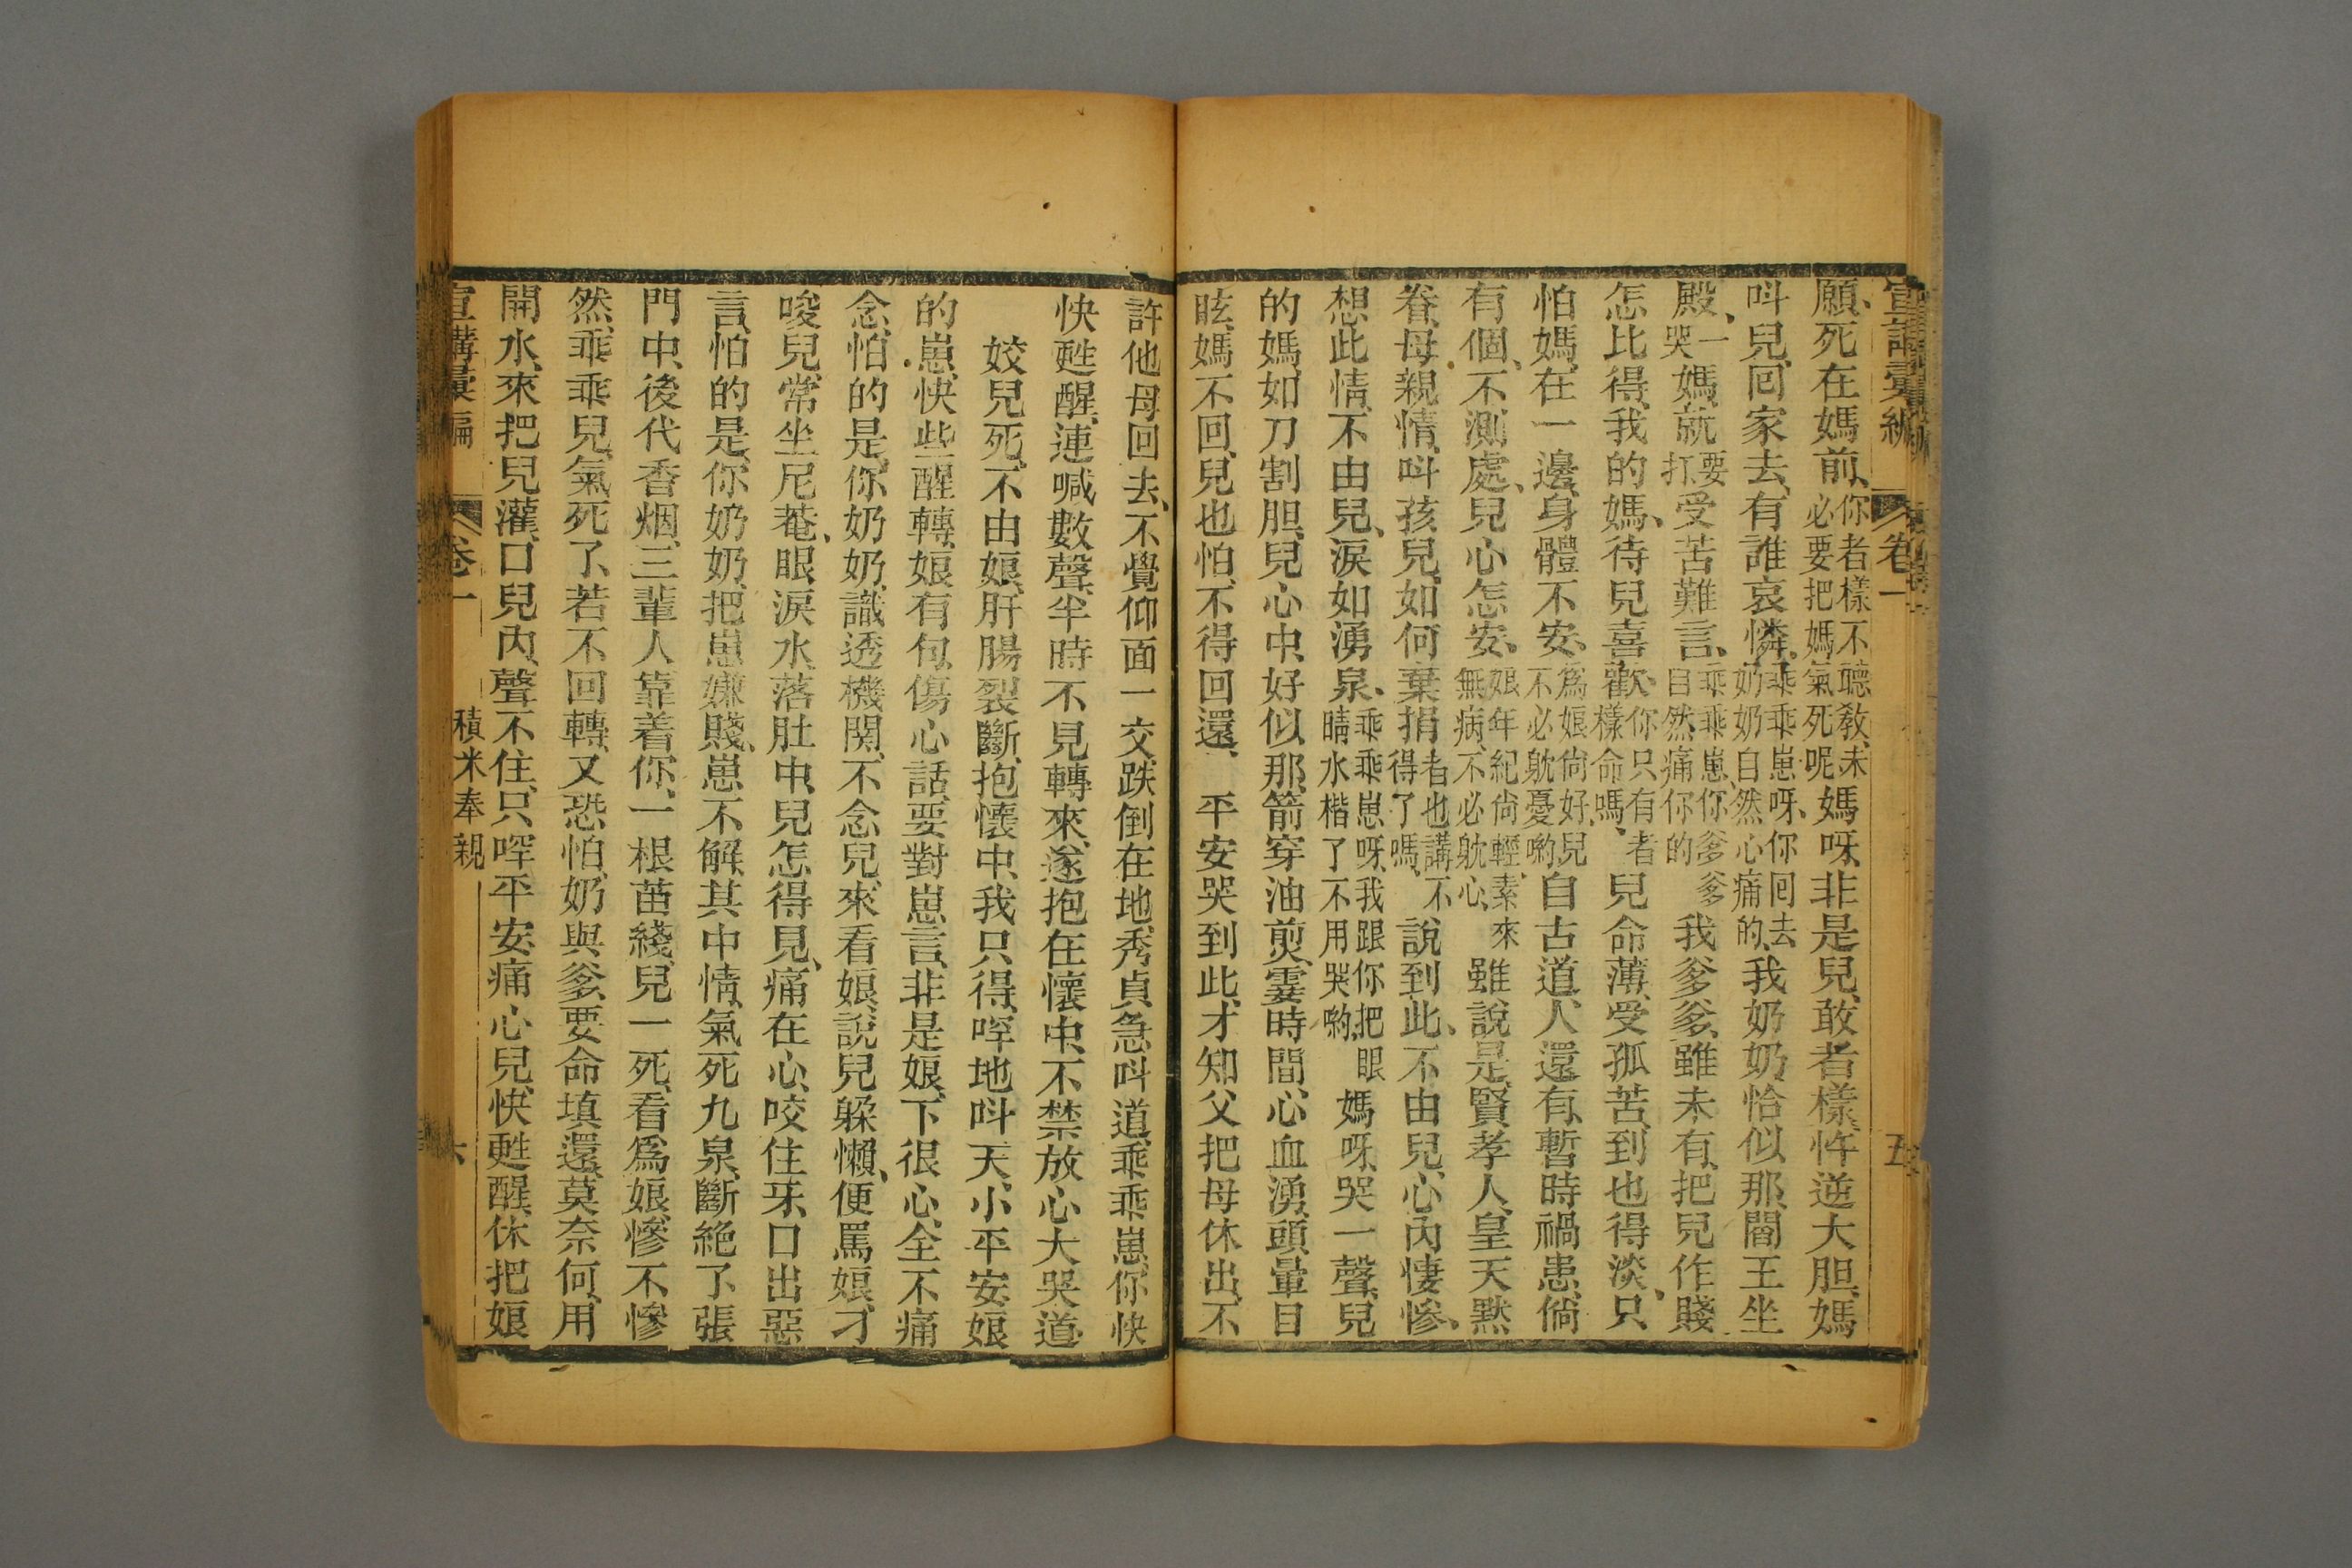 宣講彙編 卷一 五
願、死在媽前、你者樣不聽教、未必要把媽氣死呢媽呀、非是兒、敢者樣、忤逆大胆、媽
呌兒、回家去、有誰哀憐、乖乖崽呀、你回去奶奶自然心痛的、我奶奶恰似那、閻王坐
殿、一哭媽、就要打受苦難言、乖乖崽、你爹爹自然痛你的我爹爹、雖未有、把兒作賤
怎比得、我的媽、待兒喜歡、你只有者樣命嗎、兒命薄、受孤苦、到也得淡、只
怕媽、在一邊、身體不安、爲娘尙好、兒不必躭憂喲自古道、人還有、暫時禍患、倘
有個、不測處、兒心怎安、娘年紀尙輕、素來無病、不必躭心、雖說是、賢孝人、皇天黙
眷、母親情、呌孩兒、如何棄捐、者也講不得了嗎、說到此、不由兒、心內悽慘、
想此情、不由兒、淚如湧泉、乖乖崽呀、我跟你把眼睛水楷了不用哭喲、媽呀、哭一聲、兒
的媽、如刀割胆、兒心中、好似那、箭穿油煎、霎時間、心血湧、頭暈目
眩、媽不回、兒也怕、不得回還、 平安哭到此、才知父把母休出、不
許他母回去、不覺仰面一交、跌倒在地、秀貞急呌道、乖乖崽、你快
快甦醒、連喊數聲、半時不見轉來、遂抱在懷中、不禁放心大哭道
姣兒死、不由娘、肝腸裂斷、抱懷中、我只得、哻地呌天、小平安、娘
的崽、快些醒轉、娘有句、傷心話、要對崽言、非是娘、下很心、全不痛
念、怕的是、你奶奶、識透機関、不念兒、來看娘、說兒躱懶、便罵娘、才
唆兒、常坐尼菴、眼淚水、落肚中、兒怎得見、痛在心、咬住牙、口出惡
言、怕的是、你奶奶、把崽嫌賤、崽不解、其中情、氣死九泉、斷絶了、張
門中、後代香烟、三輩人、靠着你、一根苗綫、兒一死、看爲娘、慘不慘
然、乖乖兒、氣死了、若不回轉、又恐怕、奶與爹、要命填還、莫奈何、用
開水、來把兒灌、口兒內、聲不住、只哻平安、痛心兒、快甦醒、休把娘
宣講彙編 卷一 積米奉親 六